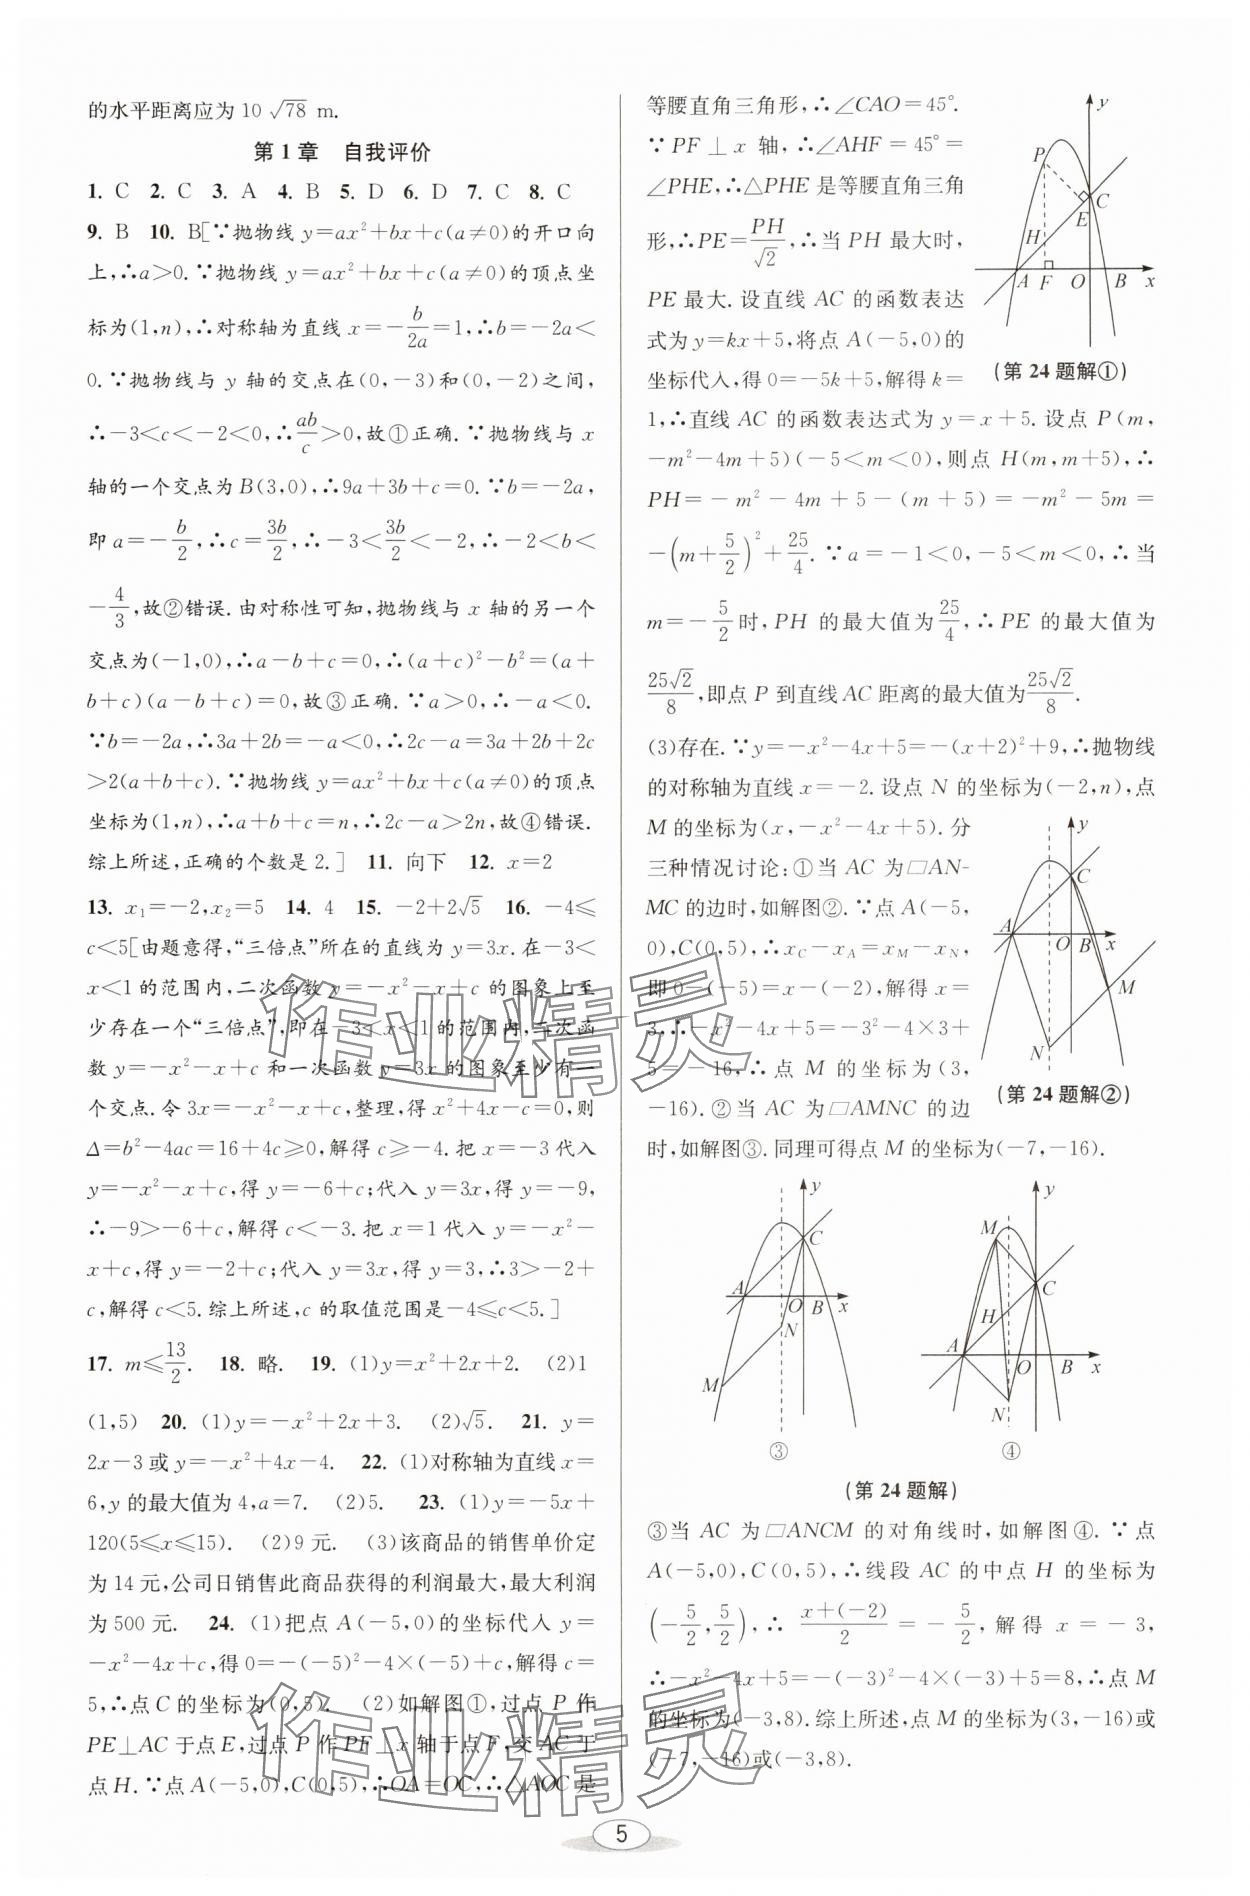 的水平距离应为 10 √78 m.
第 1 章　自我评价
1. C　2. C　3. A　4. B　5. D　6. D　7. C　8. C
9. B　10. B[∵抛物线 y=ax²+bx+c(a≠0)的开口向
上,∴a>0.∵抛物线 y=ax²+bx+c(a≠0)的顶点坐
标为(1,n),∴对称轴为直线 x=-b/2a=1,∴b=-2a<
0.∵抛物线与 y 轴的交点在(0,-3)和(0,-2)之间,
∴-3<c<-2<0,∴ab/c>0,故①正确.∵抛物线与 x
轴的一个交点为 B(3,0),∴9a+3b+c=0.∵b=-2a,
即 a=-b/2,∴c=3b/2,∴-3<3b/2<-2,∴-2<b<
-4/3,故②错误.由对称性可知,抛物线与 x 轴的另一个
交点为(-1,0),∴a-b+c=0,∴(a+c)²-b²=(a+
b+c)(a-b+c)=0,故③正确.∵a>0,∴-a<0.
∵b=-2a,∴3a+2b=-a<0,∴2c-a=3a+2b+2c
>2(a+b+c).∵抛物线 y=ax²+bx+c(a≠0)的顶点
坐标为(1,n),∴a+b+c=n,∴2c-a>2n,故④错误.
综上所述,正确的个数是 2.]　11. 向下　12. x=2
13. x₁=-2,x₂=5　14. 4　15. -2+2√5　16. -4≤
c<5[由题意得,“三倍点”所在的直线为 y=3x.在-3<
x<1 的范围内,二次函数 y=-x²-x+c 的图象上至
少存在一个“三倍点”,即在-3<x<1 的范围内,二次函
数 y=-x²-x+c 和一次函数 y=3x 的图象至少有一
个交点.令 3x=-x²-x+c,整理,得 x²+4x-c=0,则
Δ=b²-4ac=16+4c≥0,解得 c≥-4.把 x=-3 代入
y=-x²-x+c,得 y=-6+c;代入 y=3x,得 y=-9,
∴-9>-6+c,解得 c<-3.把 x=1 代入 y=-x²-
x+c,得 y=-2+c;代入 y=3x,得 y=3,∴3>-2+
c,解得 c<5.综上所述,c 的取值范围是-4≤c<5.]
17. m≤13/2.　18. 略.　19. (1)y=x²+2x+2.　(2)1
(1,5)　20. (1)y=-x²+2x+3.　(2)√5.　21. y=
2x-3 或 y=-x²+4x-4.　22. (1)对称轴为直线 x=
6,y 的最大值为 4,a=7.　(2)5.　23. (1)y=-5x+
120(5≤x≤15).　(2)9 元.　(3)该商品的销售单价定
为 14 元,公司日销售此商品获得的利润最大,最大利润
为 500 元.　24. (1)把点 A(-5,0)的坐标代入 y=
-x²-4x+c,得 0=-(-5)²-4×(-5)+c,解得 c=
5,∴点 C 的坐标为(0,5).　(2)如解图①,过点 P 作
PE⊥AC 于点 E,过点 P 作 PF⊥x 轴于点 F,交 AC 于
点 H.∵点 A(-5,0),C(0,5),∴OA=OC,∴△AOC 是
等腰直角三角形,∴∠CAO=45°.
∵PF⊥x 轴,∴∠AHF=45°=
∠PHE,∴△PHE 是等腰直角三角
形,∴PE=PH/√2,∴当 PH 最大时,
PE 最大.设直线 AC 的函数表达
式为 y=kx+5,将点 A(-5,0)的
坐标代入,得 0=-5k+5,解得 k=
y
P
C
E
H
A F O B x
(第 24 题解①)
1,∴直线 AC 的函数表达式为 y=x+5.设点 P(m,
-m²-4m+5)(-5<m<0),则点 H(m,m+5),∴
PH=-m²-4m+5-(m+5)=-m²-5m=
-(m+5/2)²+25/4.∵a=-1<0,-5<m<0,∴当
m=-5/2时,PH 的最大值为25/4,∴PE 的最大值为
25√2/8,即点 P 到直线 AC 距离的最大值为25√2/8.
(3)存在.∵y=-x²-4x+5=-(x+2)²+9,∴抛物线
的对称轴为直线 x=-2.设点 N 的坐标为(-2,n),点
M 的坐标为(x,-x²-4x+5).分
三种情况讨论:①当 AC 为□AN-
MC 的边时,如解图②.∵点 A(-5,
0),C(0,5),∴x_C-x_A=x_M-x_N,
即 0-(-5)=x-(-2),解得 x=
3,∴-x²-4x+5=-3²-4×3+
5=-16,∴点 M 的坐标为(3,
-16).②当 AC 为□AMNC 的边
y
C
A O B x
M
N
(第 24 题解②)
时,如解图③.同理可得点 M 的坐标为(-7,-16).
y
C
A O B x
N
M
③
y
M
C
H
A O B x
N
④
(第 24 题解)
③当 AC 为□ANCM 的对角线时,如解图④.∵点
A(-5,0),C(0,5),∴线段 AC 的中点 H 的坐标为
(-5/2,5/2),∴x+(-2)/2=-5/2,解得 x=-3,
∴-x²-4x+5=-(-3)²-4×(-3)+5=8,∴点 M
的坐标为(-3,8).综上所述,点 M 的坐标为(3,-16)或
(-7,-16)或(-3,8).
作业精灵
作业精灵
5